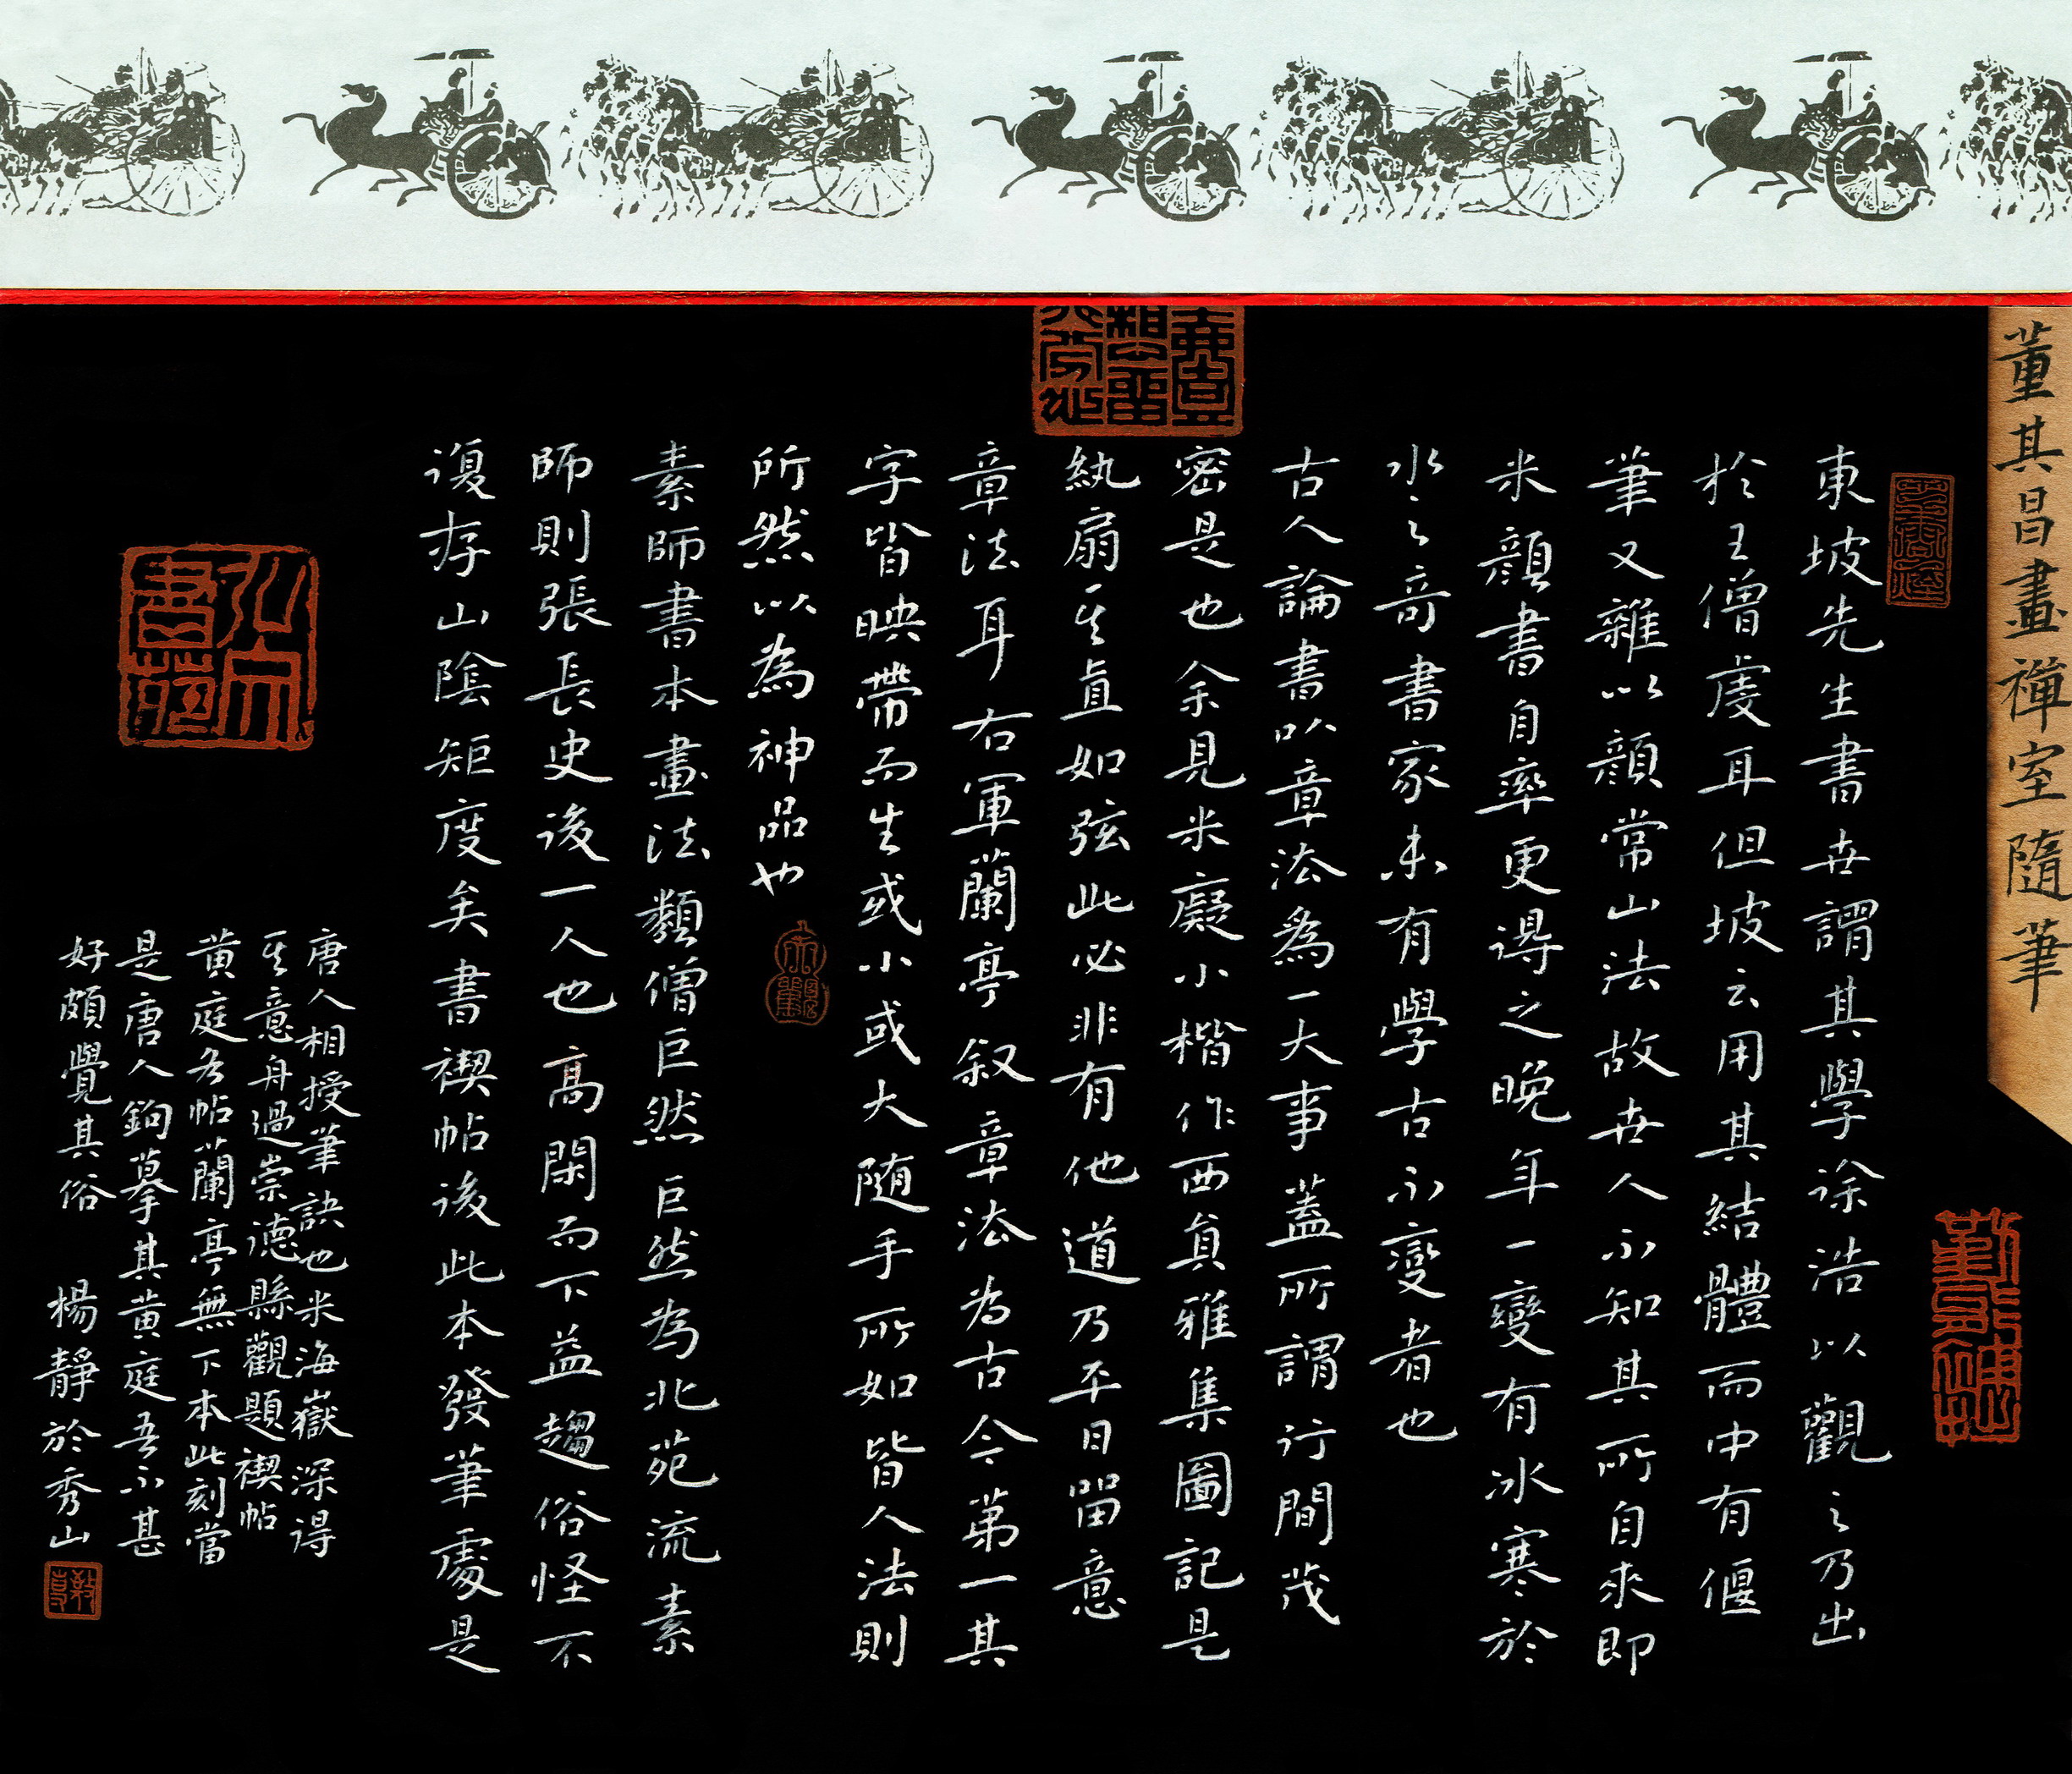 董其昌畫禪室隨筆
東坡先生書世謂其學徐浩以觀之乃出
於王僧虔耳但坡云用其結體而中有偃
筆又雜以顔常山法故世人不知其所自来即
米顔書自率更得之晚年一變有冰寒於
水之奇書家未有學古不變者也
古人論書以章法為一大事蓋所謂行間茂
密是也余見米癡小楷作西員雅集圖記是
紈扇其直如弦此必非有他道乃平日留意
章法耳右軍蘭亭叙章法為古今第一其
字皆映帶而生或小或大随手所如皆入法則
所然以為神品也
素師書本畫法類僧巨然巨然為北苑流素
師則張長史後一人也高閑而下益趨俗怪不
復存山陰矩度矣書禊帖後此本發筆處是
唐人相授筆訣也米海嶽深得
其意舟過崇德縣觀題禊帖
黄庭各帖蘭亭無下本此刻當
是唐人鉤摹其黄庭吾不甚
好頗覺其俗 楊靜於秀山